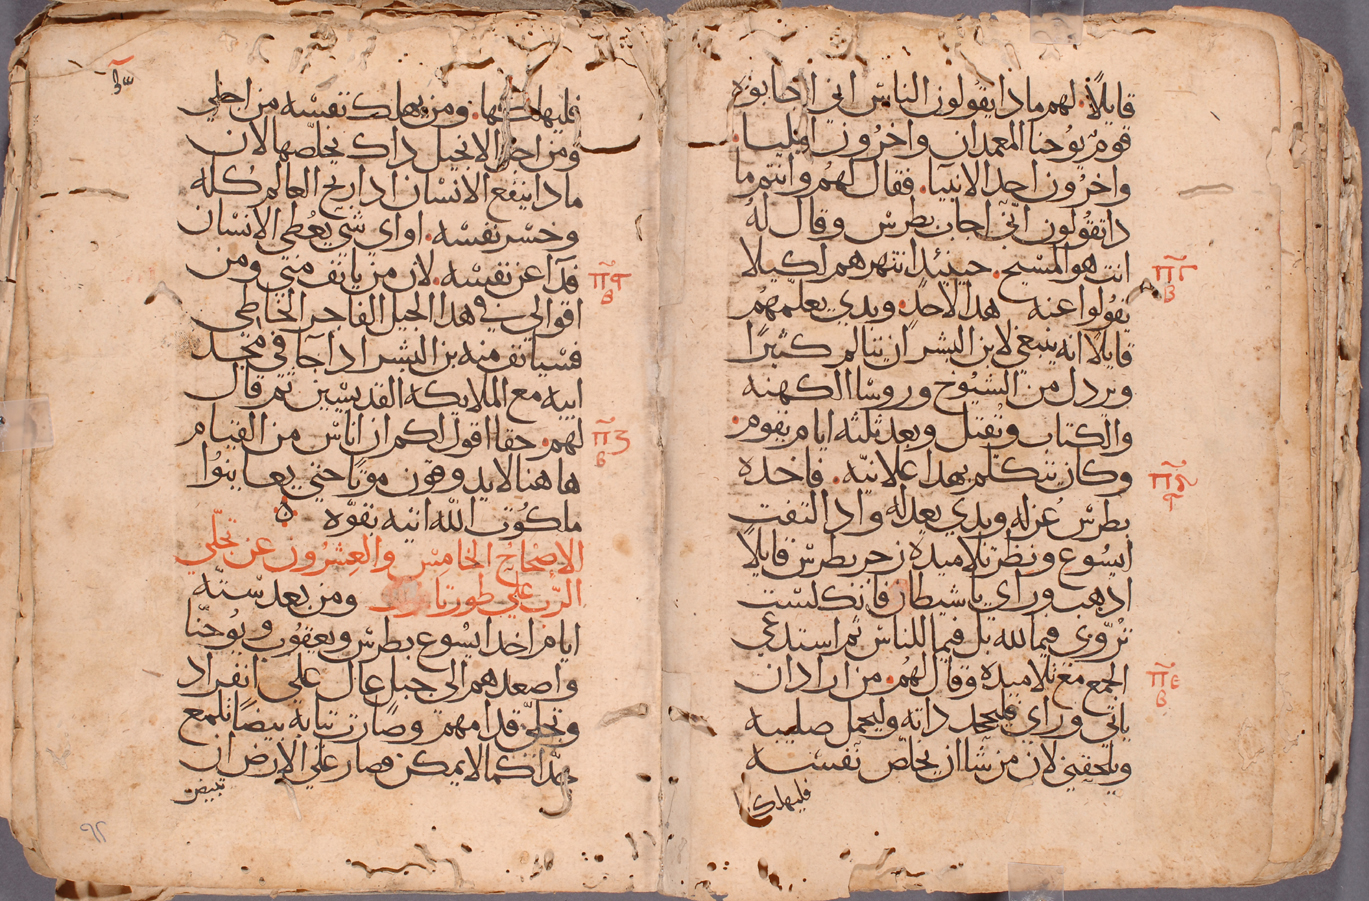 قايلاً. لهم ماذا يقولون الناس اني انا جابوه
قوم يوحنا المعمدان واخرون ايليا.
واخرون احد الانبيا. فقال لهم وانتم ما
ذا تقولون اني اجاب بطرس وقال له
انت هو المسيح. حينيذ انتهرهم لكيلا
يقولوا عنه هذا لاحد. وبدي يعلمهم
قايلا انه ينبغي لابن البشر ان يتالم كثيرًا
ويرذل من الشيوخ وروسا الكهنه
والكتاب ويقتل وبعد ثلثه ايام يقوم.
وكان يتكلم بهذا علانيه. فاخذه
بطرس عزله وبدي يعدله واذ التفت
ايسوع ونظر تلاميذه زجر بطرس قايلاً
اذهب وراي يا شيطان فانك لست
تروي فيما لله بل فيما للناس ثم استدعي
الجمع مع تلاميذه وقال لهم. من اراد ان
ياتي وراي فليجحد ذاته وليحمل صليبه
ويلحقني لان من شا ان يخلص نفسه
فليهلك
فليهلكها. ومن يهلك نفسه من اجلي
ومن اجل الانجيل ذاك يخلصها لان
ماذا ينفع الانسان اذا ربح العالم كله
وخسر نفسه. او اي شي يعطي الانسان
فدآ عن نفسه. لان من يانف مني ومن
اقوالي في هذا الجيل الفاجر الخاطي
فسيانف منه بن البشر اذا جا في مجد
ابيه مع الملايكه القديسين ثم قال
لهم. حقا اقول لكم ان اناس من القيام
هاهنا لا يدوقون موتًا حتي يعاينوا
ملكوت الله اتيه بقوه
الاصحاح الخامس والعشرون عن تجلي
الرب علي طور تابور ومن بعد سته
ايام اخذ ايسوع بطرس ويعقوب ويوحنا
واصعدهم الي جبل عال علي انفراد
وتجلي قدامهم وصارت ثيابه بيضًا تلمع
جدًا كما لا يمكن قصار علي الارض ان
يبيض